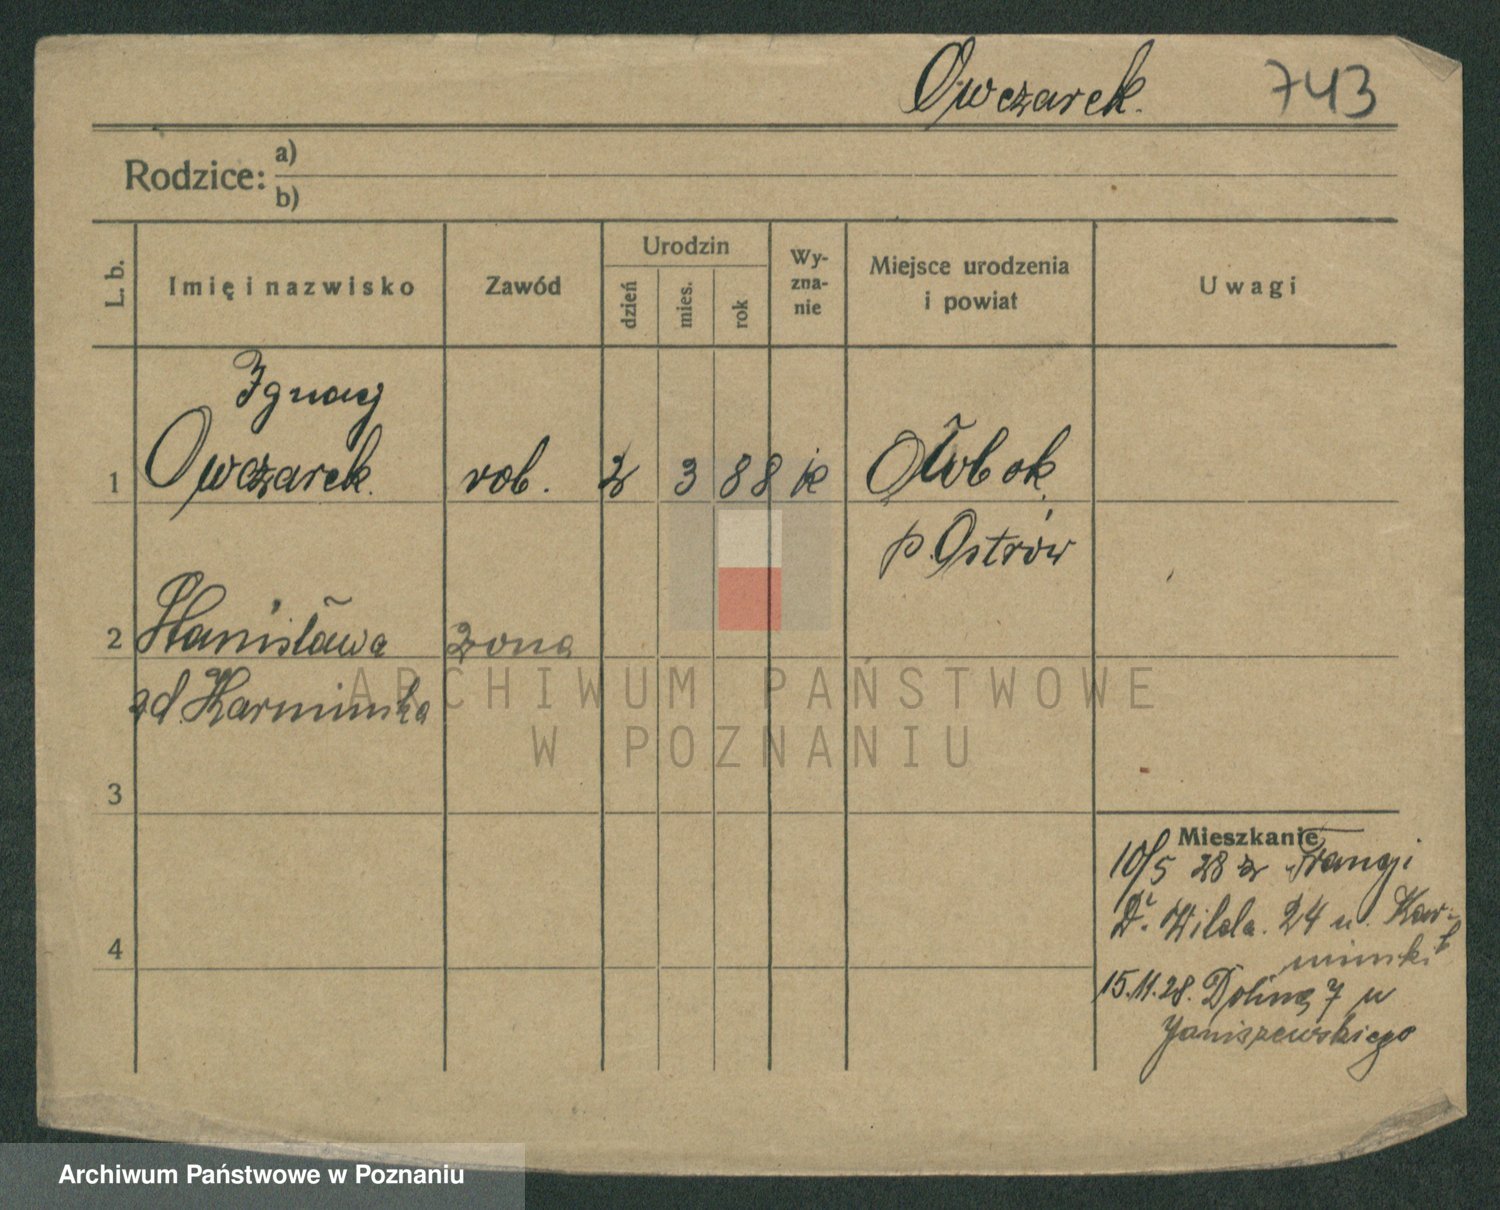 Owczarek. 743
Rodzice: a)
b)
L. b. Imię i nazwisko Zawód Urodzin dzień mies. rok Wy-zna-nie Miejsce urodzenia i powiat Uwagi
Ignacy
1 Owczarek. rob. 2 3 88 k Ołobok
p. Ostrów
2 Stanisława żona
3
4
Mieszkanie
10/5 28 z Francji
Dr. Wilda. 24 u. Kar-
minski
15.11.28. Dolina 7 u
Janiszewskiego
ARCHIWUM PAŃSTWOWE
W POZNANIU
Archiwum Państwowe w Poznaniu